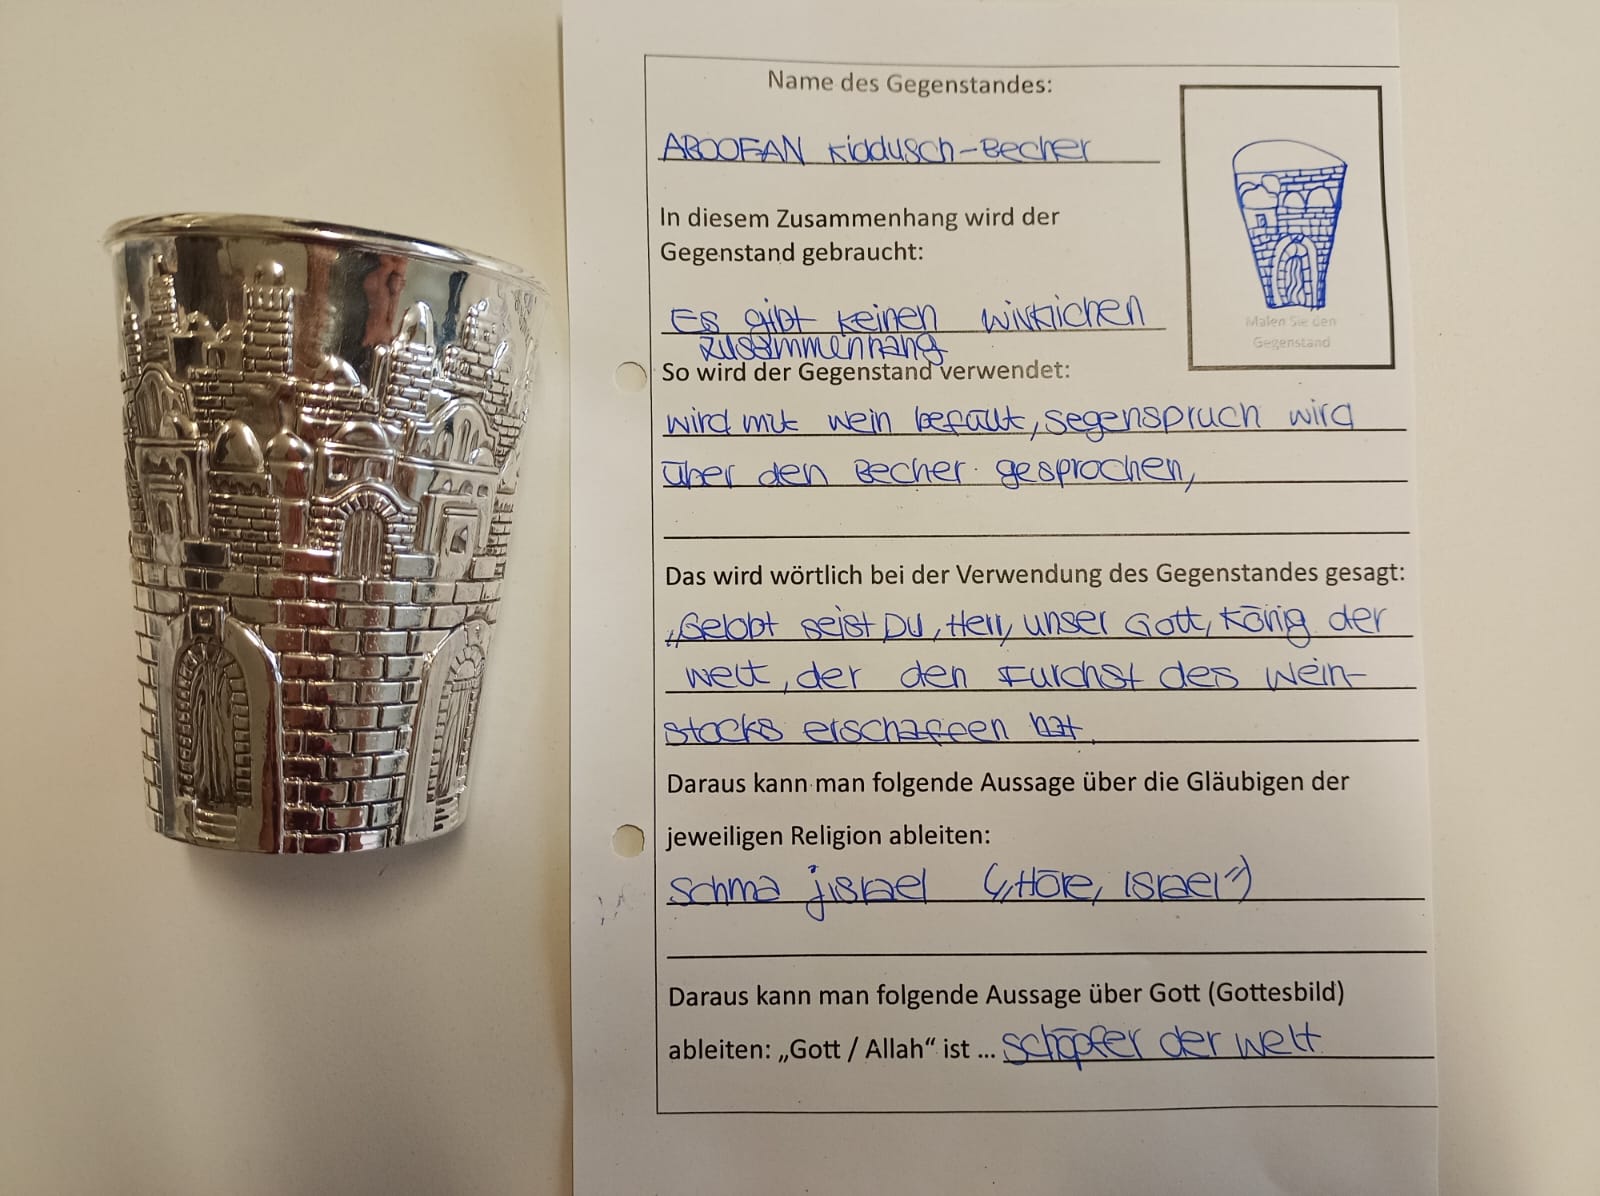 Name des Gegenstandes:
ABOOFAN Kiddusch-Becher
In diesem Zusammenhang wird der
Gegenstand gebraucht:
Es gibt keinen wirklichen
zusammenhang
Malen Sie den
Gegenstand
So wird der Gegenstand verwendet:
wird mit wein befüllt, segenspruch wird
über den Becher gesprochen,
Das wird wörtlich bei der Verwendung des Gegenstandes gesagt:
„Gelobt seist Du, Herr, unser Gott, König der
welt, der den Furchst des Wein-
stocks erschaffen hat.
Daraus kann man folgende Aussage über die Gläubigen der
jeweiligen Religion ableiten:
Schma jisrael („Höre, Israel")
Daraus kann man folgende Aussage über Gott (Gottesbild)
ableiten: „Gott / Allah“ ist ... schöpfer der welt